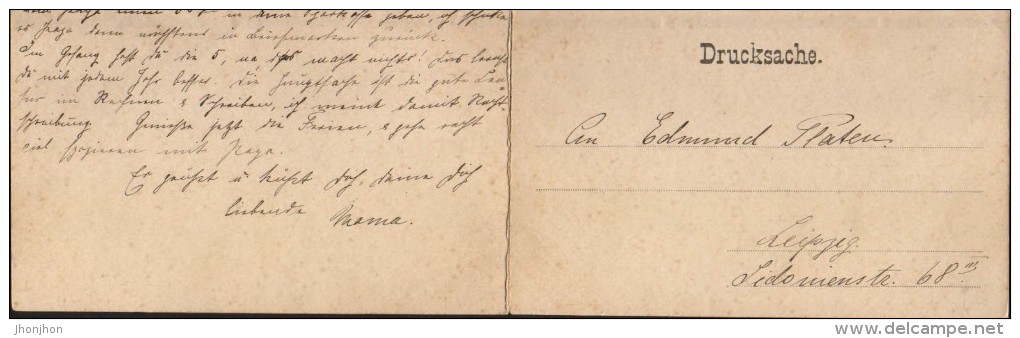 einen in deine Sparkasse geben, ich schicke
es Papa dann nächstens in Briefmarken zurück.
Im Gesang hast du die 5, na das macht nichts! Das lernst
du mit jedem Jahr besser. Die Hauptsache ist die gute Zensur
im Rechnen & Schreiben, ich meine damit Rechtschreibung
Genieße jetzt die Ferien, & gehe recht
viel spazieren mit Papa.
Es grüßt u küßt Dich, deine Dich
liebende Mama.
Drucksache.
An Edmund Platen.
Leipzig.
Sidonienstr. 68 III
jhonjhon
www.delcampe.net